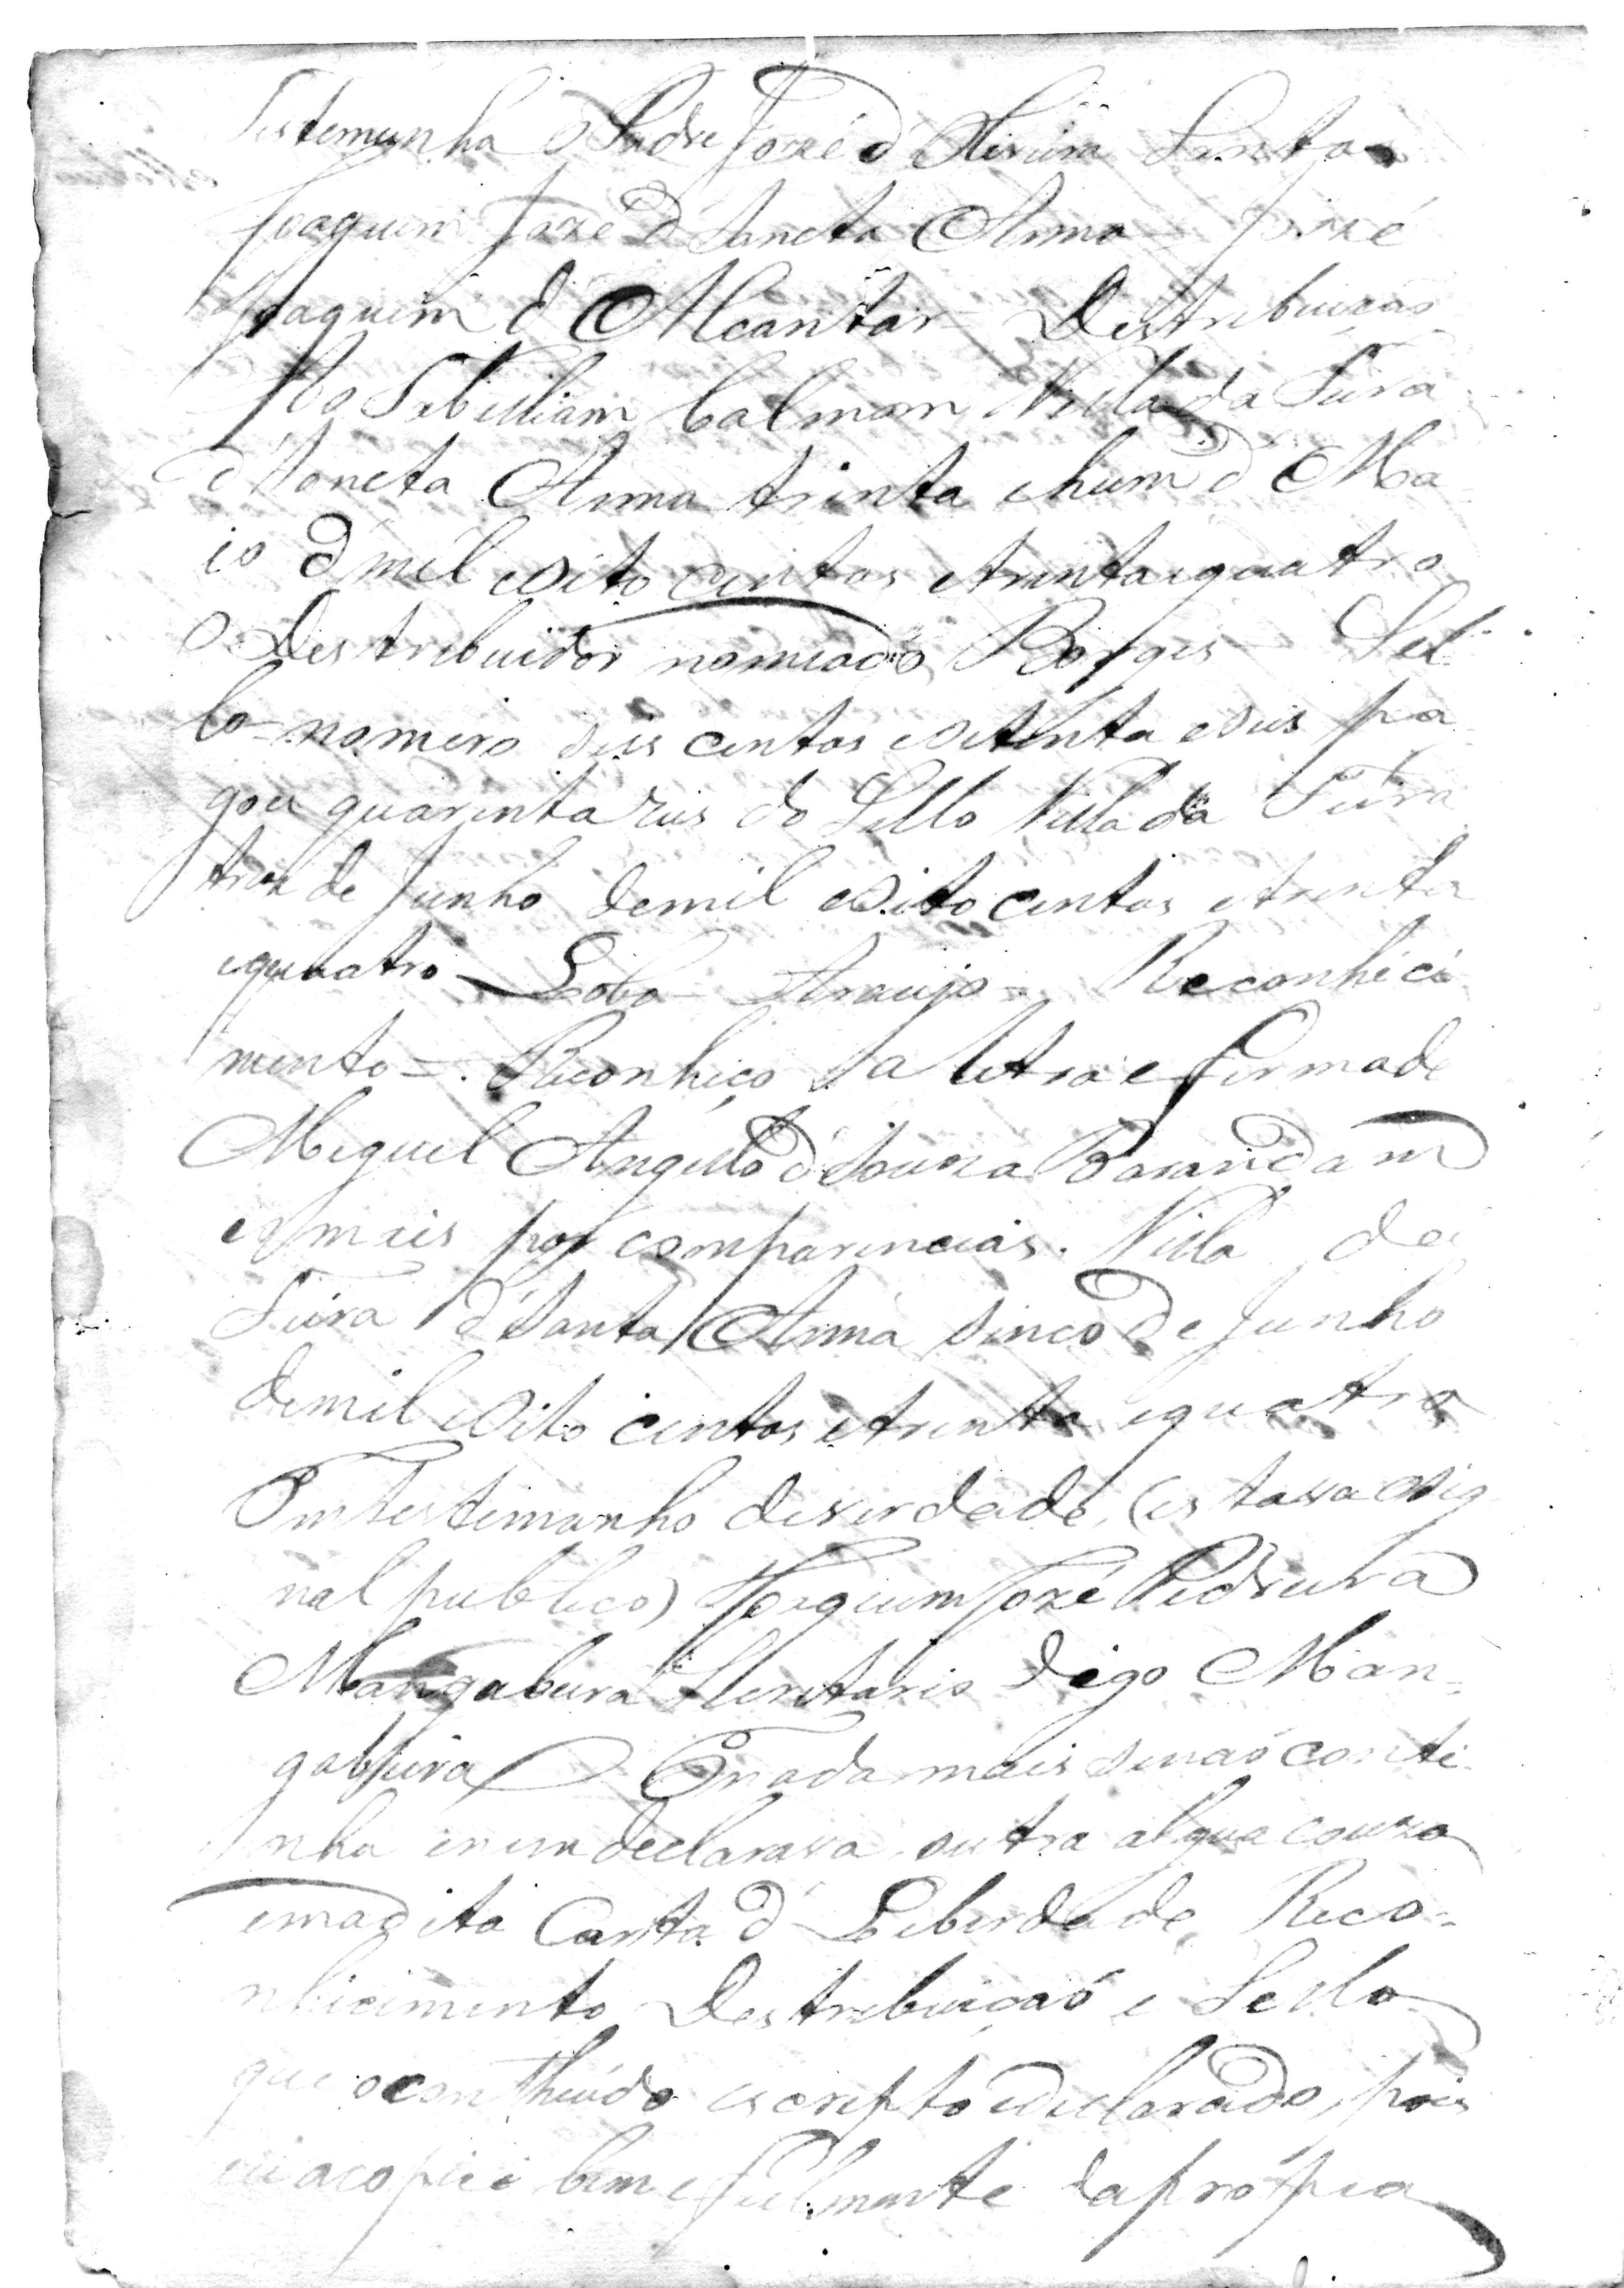 Testemunha o Padre Jozé d' Oliveira Santos
Joaquim Jozé d' Sancta Anna Jozé
Joaquim d' Alcantar Destribuiçaõ
Ao Tabelliam Calmon Villa da Feira
d' Sancta Anna trinta ehum d' Ma
io d' mil eoito centos etrintaequatro
O Destribuidor nomiado Borges Sel
lo nomero seis centos esetenta eseis pa
gou quarenta reis do Sello Villa da Feira
tres de Junho demil eoito centos etrinta
equatro Lobo Araujo = Reconheci
mento = Reconheço a letra e firma de
Meguel Angello d' Souza
emais por comparencias. Villa da
Feira d' Santa Anna sinco de Junho
demil eoito centos etrinta equatro
Emtestimunho deverdade, (estava osig
nal publico) Joaquim Jozé Pedreira
Mangabeira Secretario digo Man=
gabeira Enada mais senaõ conti
nha enem declarava outra algua couza
emadita Carta d' Liberdade, Reco=
nhicimento Destribuiçaõ e Sello
que ocontheúdo escripto edeclarado, pois
eu acopiei bem efielmente daprópria